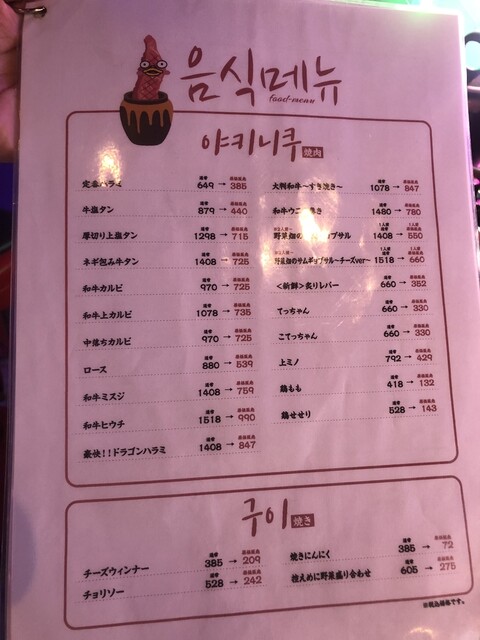 음식메뉴
food-menu
야키니쿠 焼肉
定番ハラミ 649 → 385
牛塩タン 879 → 440
厚切り上塩タン 1298 → 715
ネギ包み牛タン 1408 → 725
和牛カルビ 970 → 725
和牛上カルビ 1078 → 735
中落ちカルビ 970 → 725
ロース 880 → 539
和牛ミスジ 1408 → 759
和牛ヒウチ 1518 → 990
豪快!!ドラゴンハラミ 1408 → 847
大判和牛〜すき焼き〜 1078 → 847
和牛ウニ 1480 → 780
野菜畑の プサル 1408 → 550
野菜畑のサムギョプサル〜チーズver〜 1518 → 660
<新鮮>炙りレバー 660 → 352
てっちゃん 660 → 330
こてっちゃん 660 → 330
上ミノ 792 → 429
鶏もも 418 → 132
鶏せせり 528 → 143
구이 焼き
チーズウィンナー 385 → 209
チョリソー 528 → 242
焼きにんにく 385 → 72
控えめに野菜盛り合わせ 605 → 275
※税込価格です。